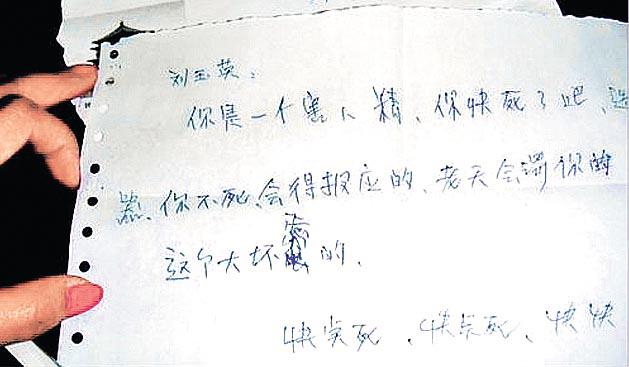 刘玉英：
你是一个害人精、你快死了吧、
你不死、会得报应的、老天会谓你的
这个大坏的.
快点死、快点死、快快